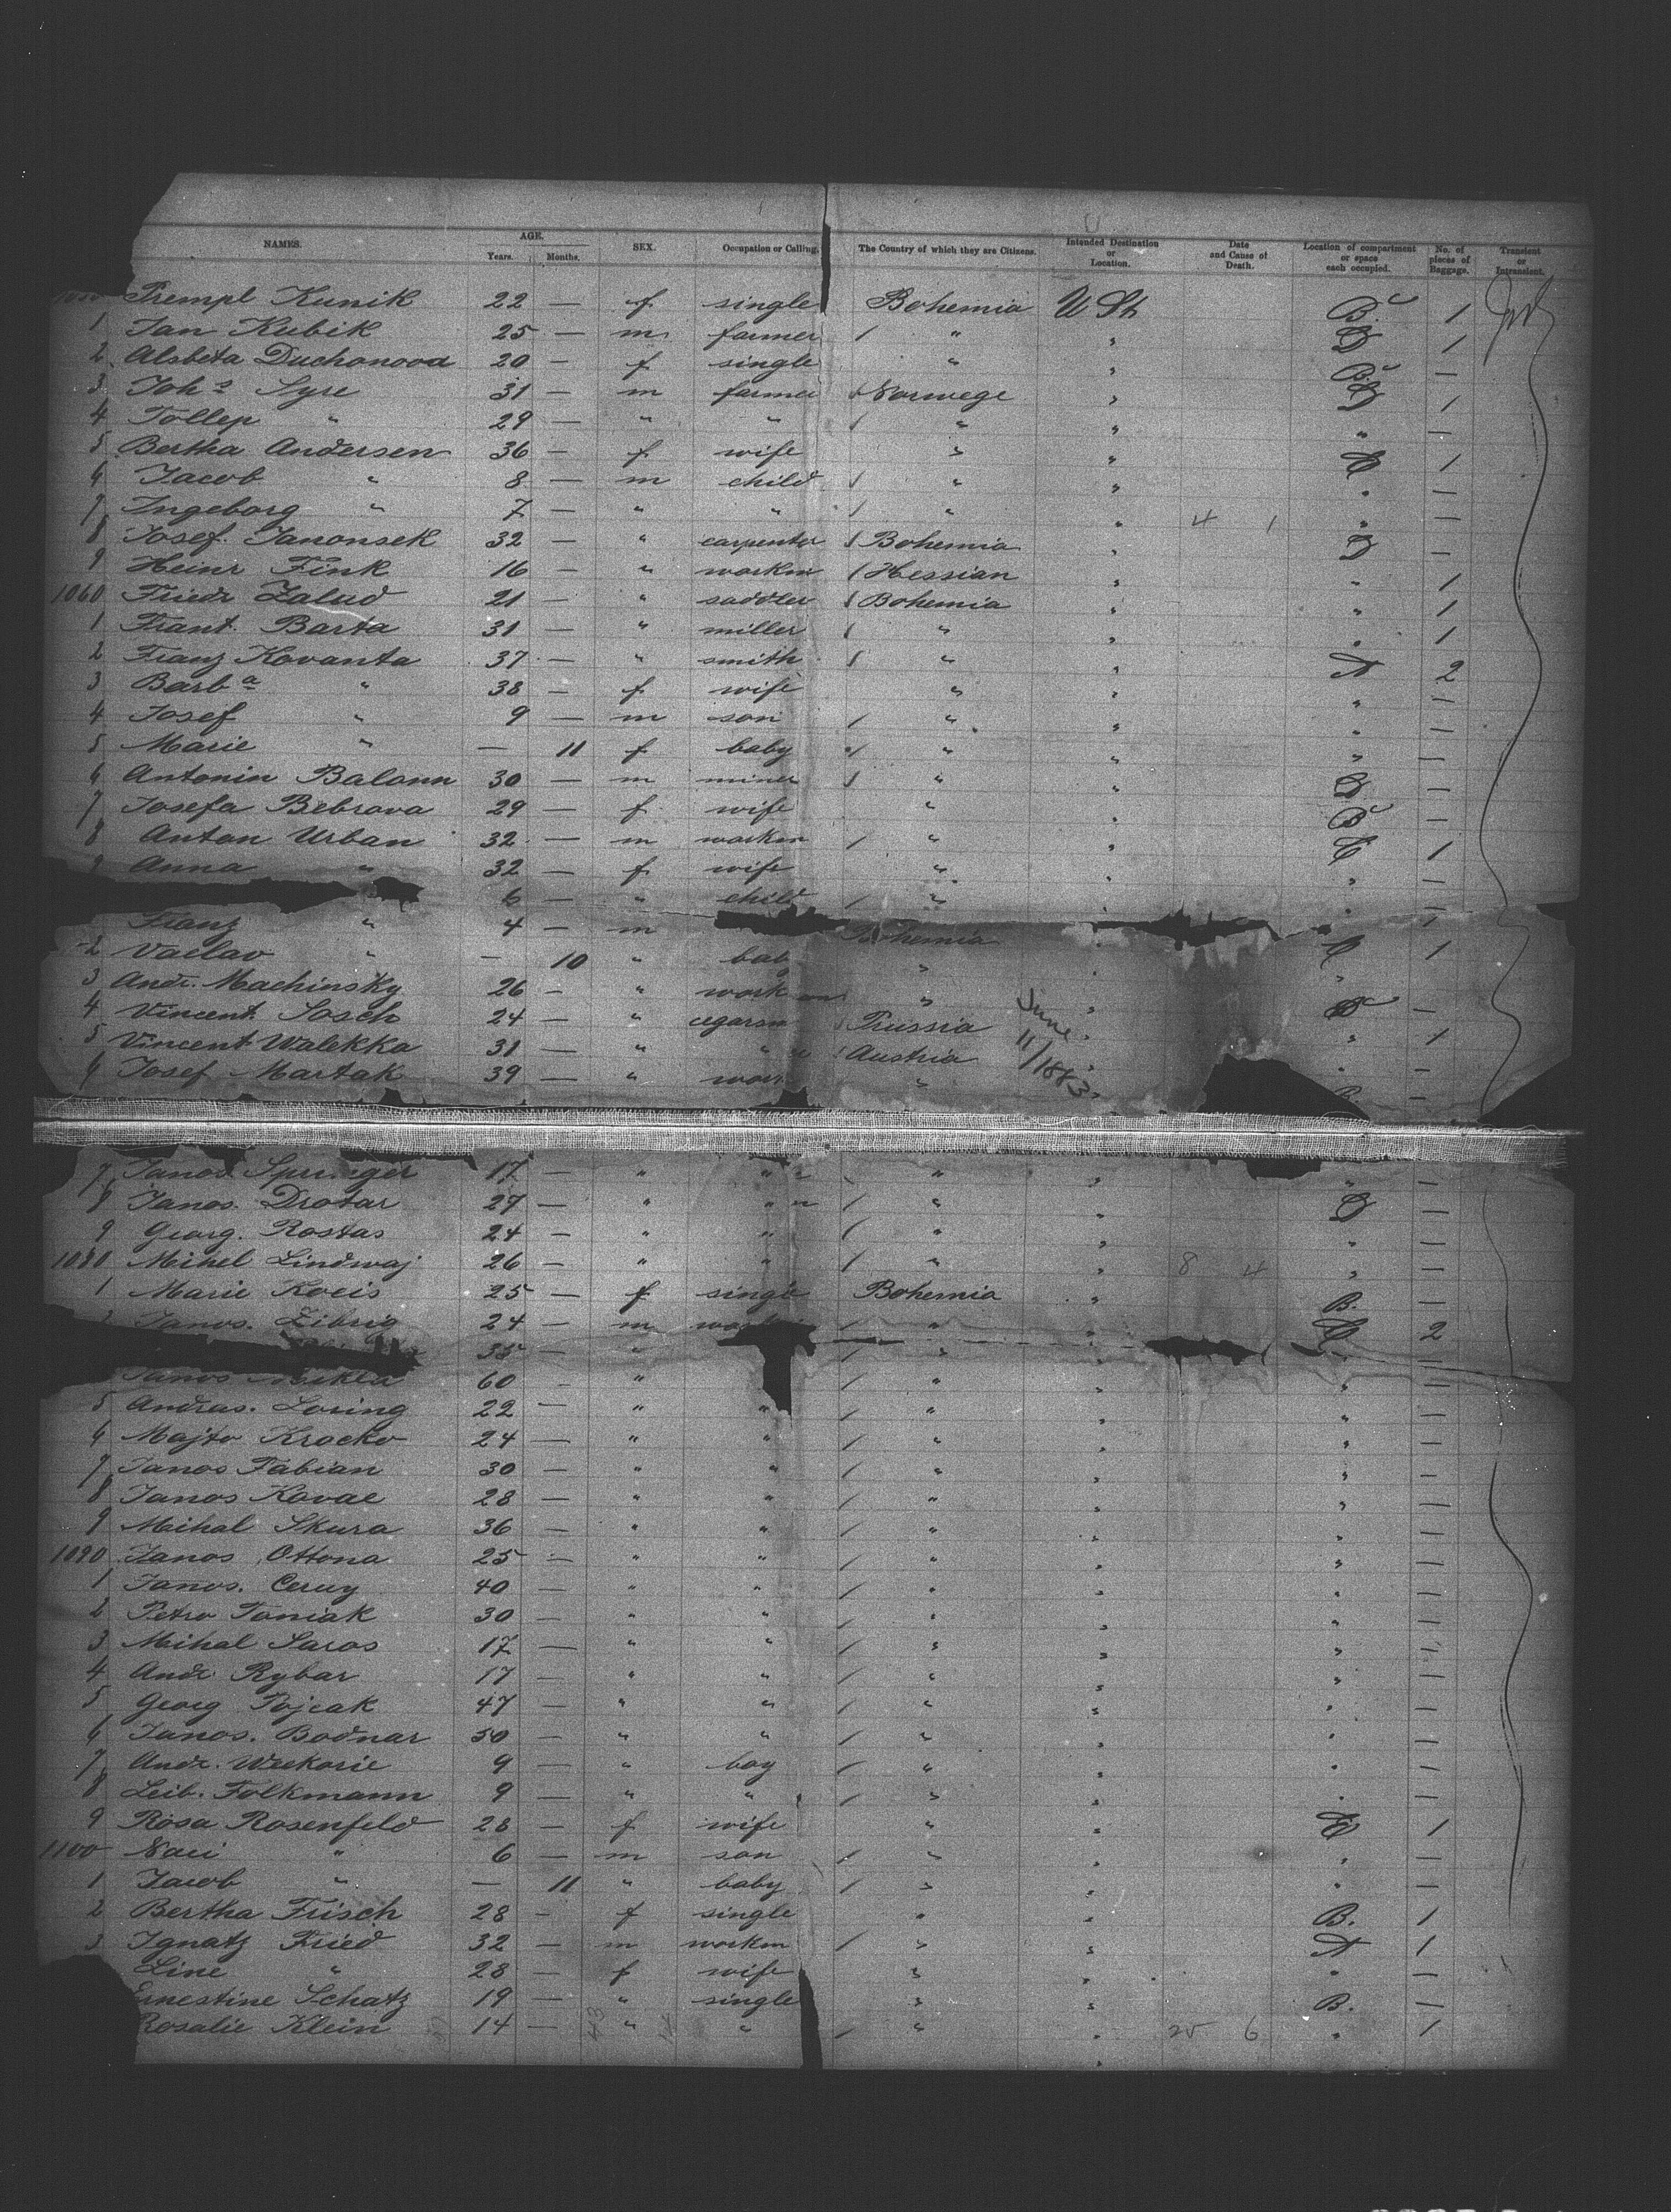 NAMES. AGE. Years. Months. SEX. Occupation or Calling. The Country of which they are Citizens. Intended Destination or Location. Date and Cause of Death. Location of compartment or space each occupied. No. of pieces of Baggage. Transient or Intransient.
Prempl Kunik 22 — f single Bohemia U St B. 1
1 Jan Kubik 25 — m farmer / " " D 1
2 Alsbeta Duchonova 20 — f single " " B. —
3 Johs Syre 31 — m farmer / Norwege " D 1
4 Tollep " 29 — " " / " " " —
5 Bertha Andersen 36 — f wife " " E 1
6 Jacob " 8 — m child / " " " —
7 Ingeborg " 7 — " " / " " 4 1 " —
8 Josef Janonsek 32 — " carpenter / Bohemia " D —
9 Heinr Fink 16 — " workm / Hessian " " 1
1060 Friedr Zalud 21 — " saddler / Bohemia " " 1
1 Frant. Barta 31 — " miller / " " " 1
2 Franz Kovanta 37 — " smith / " " A 2
3 Barba " 38 — f wife " " " —
4 Josef " 9 — m son / " " " —
5 Marie " — 11 f baby / " " " —
6 Antonin Balonn 30 — m miner / " " D —
7 Josefa Bebrava 29 — f wife " " B —
8 Anton Urban 32 — m workm / " " E 1
9 Anna " 32 — f wife " " " —
6 — " child / " " " —
Franz " 4 — m Bohemia " E 1
2 Vaclav " — 10 " bab " " "
3 Andr. Machinsky 26 — " workm " " —
4 Vincent Sosch 24 — " cegarm / Prussia " " 1
5 Vincent Walekka 31 — " " / Austria " " —
6 Josef Martak 39 — " work " " —
June 11/1883
7 Janos Springer 17 — " " " " " —
8 Janos. Drotar 27 — " " / " " —
9 Georg. Rostas 24 — " " / " " " —
1080 Mihel Lindwaj 26 — " " / " " 8 4 " —
1 Marie Kocis 25 — f single Bohemia " B. —
2 Janos. Zibrig 24 — m work / " " E 2
35 — " / " " " —
Janos Mikla 60 — " / " " " —
5 Andras. Loring 22 — " " / " " " —
6 Majto Krocko 24 — " " / " " " —
7 Janos Fabian 30 — " " / " " " —
8 Janos Kovac 28 — " " / " " " —
9 Mihal Skura 36 — " " / " " " —
1090 Janos Ottona 25 — " " / " " " —
1 Janos. Ceruy 40 — " " / " " " —
2 Petro Toniak 30 — " " / " " " —
3 Mihal Saros 17 — " " / " " " —
4 Andr. Rybar 17 — " " / " " " —
5 Georg Pojcak 47 — " " / " " " —
6 Janos. Bodnar 50 — " " / " " " —
7 Andr. Weekorie 9 — " boy / " " " —
8 Leib. Folkmann 9 — " " / " " " —
9 Rosa Rosenfeld 28 — f wife " " E 1
1100 Naci " 6 — m son / " " " —
1 Jacob " — 11 " baby / " " " —
2 Bertha Frisch 28 — f single " " B. 1
3 Ignatz Fried 32 — m workm / " " A 1
Line " 28 — f wife " " " —
Ernestine Schatz 19 — " single " " B. —
Rosalie Klein 14 — " " / " " 25 6 " 1